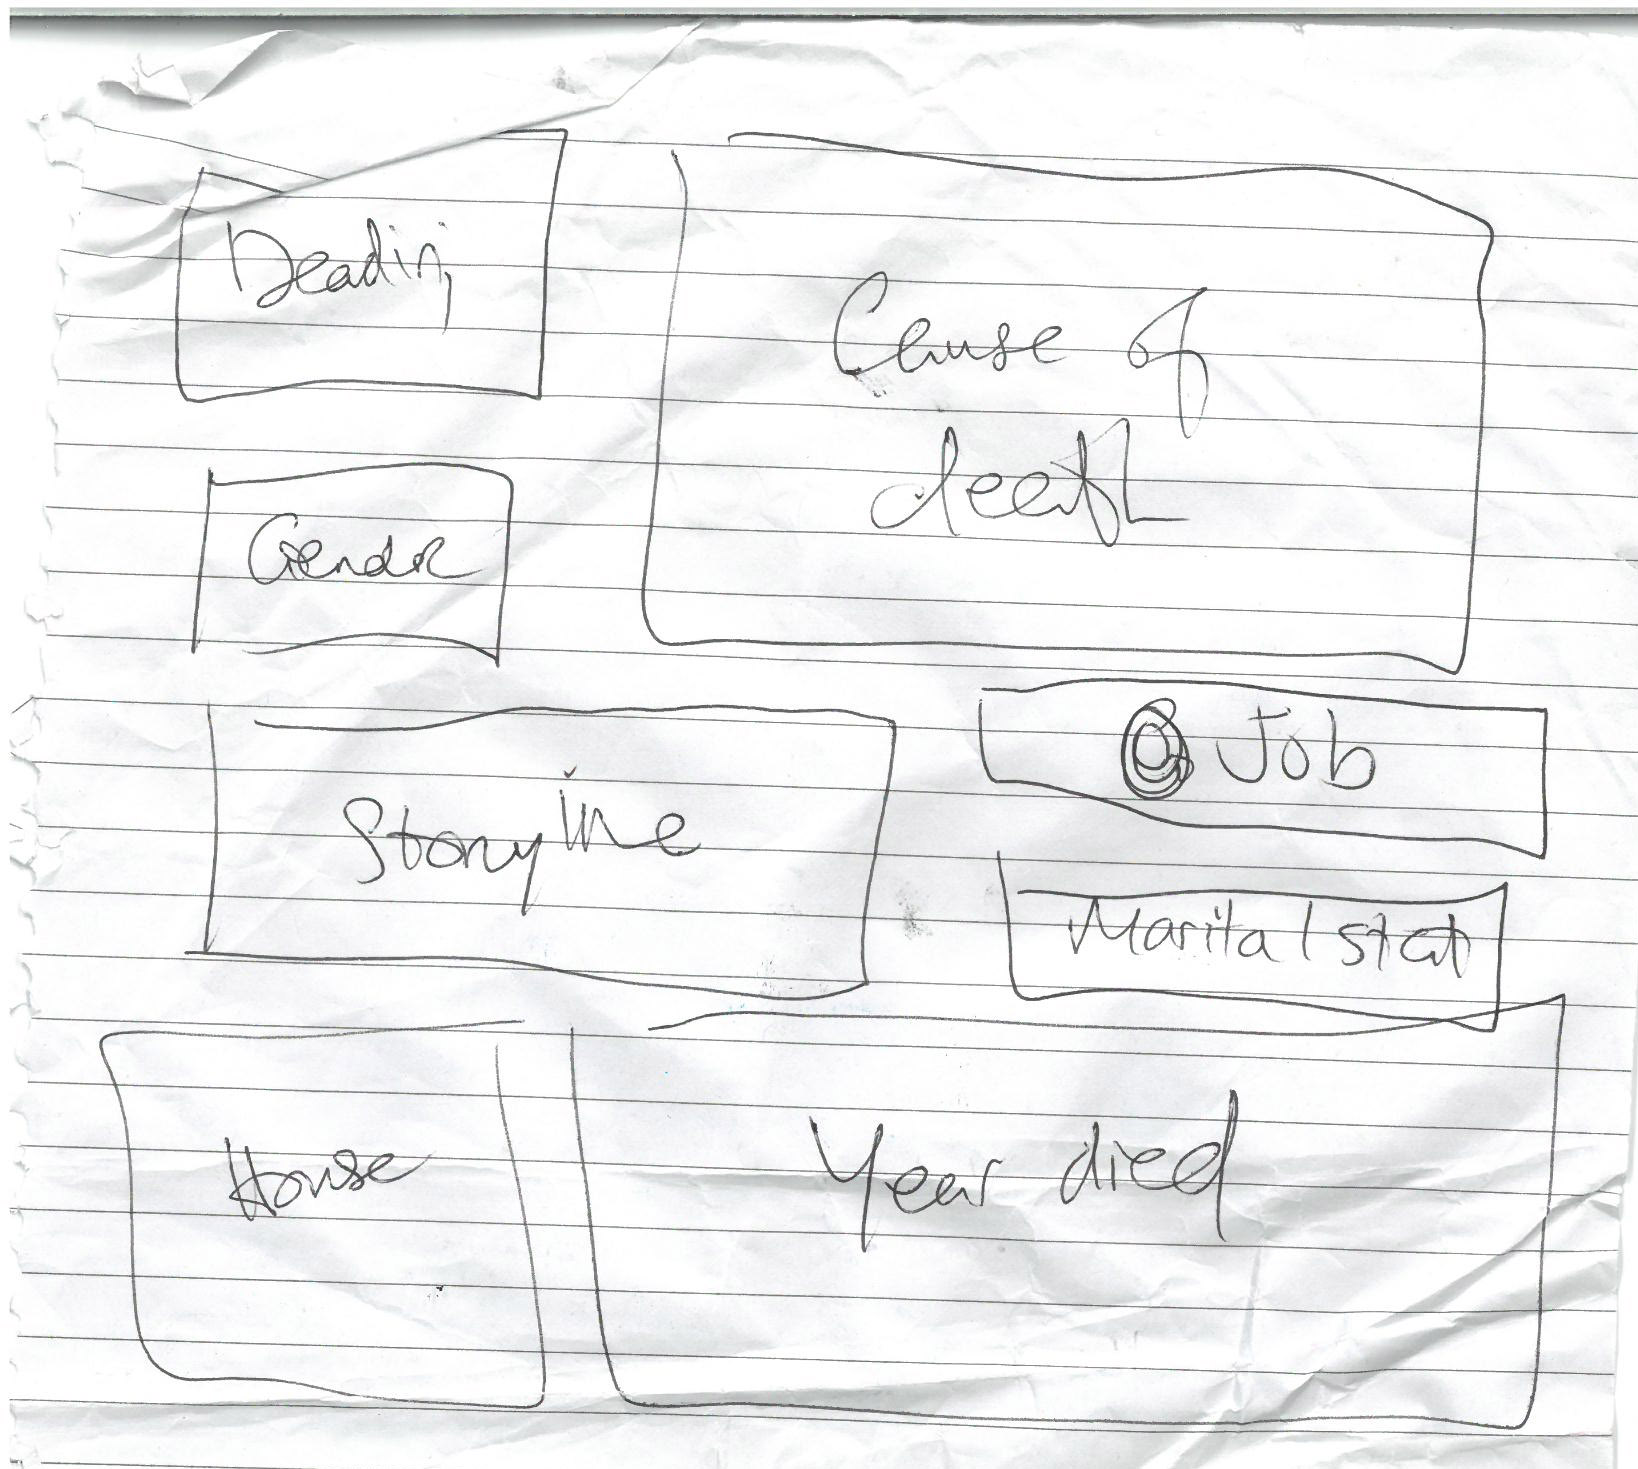 Cause of
death
Gender
Job
Story line
Marital stat
House
Year died